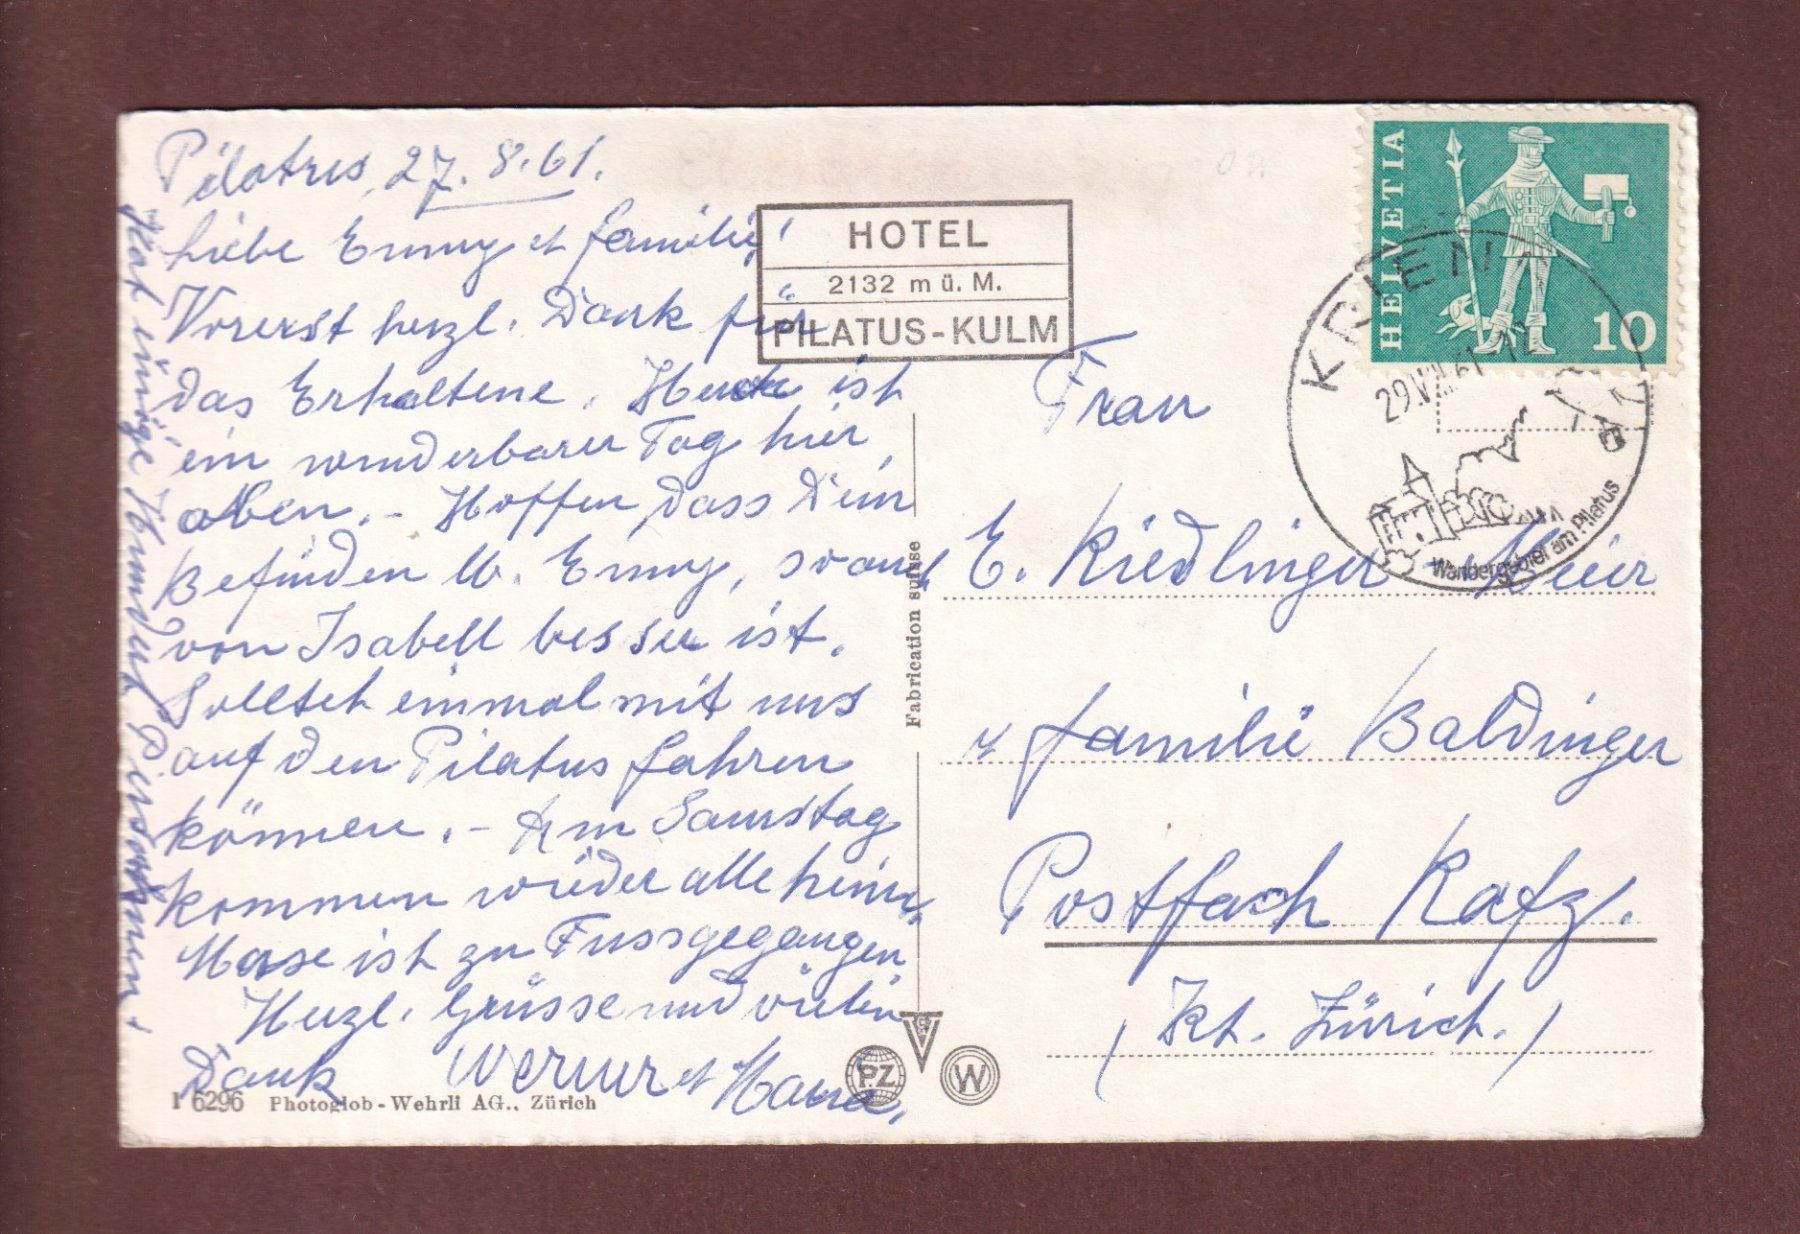 Pilatus, 27. 8. 61.
Liebe Emmy et familie!
Vorerst herzl. Dank für
das Erhaltene. Heute ist
ein wunderbarer Tag hier
oben. - Hoffen, dass Dein
Befinden lb. Emmy, so auch
von Isabell besser ist.
Solltet einmal mit uns
auf den Pilatus fahren
können. - Am Samstag
kommen wieder alle heim.
ist zu Fuss gegangen.
Herzl. Grüsse und vielen
Dank Werner et
Hat einige Hundert Personen.
HOTEL
2132 m ü. M.
PILATUS-KULM
HELVETIA
10
KRIENS
29.VIII.61-12
Wandergebiet am Pilatus
Frau
E. Riedlinger-Meier
familie Baldinger
Postfach Rafz.
(Kt. Zürich.)
Fabrication suisse
P.Z
W
I 6296 Photoglob-Wehrli AG., Zürich